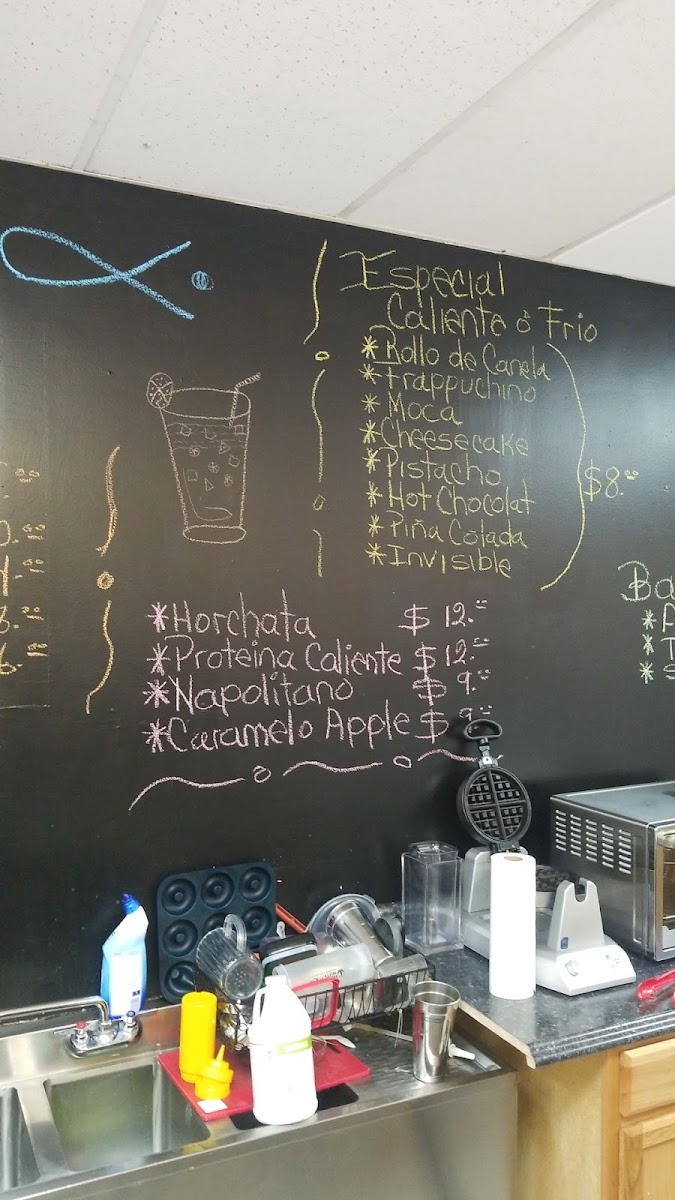 Especial
Caliente ó Frio
*Rollo de Canela
*Frappuchino
*Moca
*Cheesecake
*Pistacho
*Hot Chocolat
*Piña Colada
*Invisible
$8.=
*Horchata $12.=
*Proteina Caliente $12.=
*Napolitano $9.=
*Caramelo Apple $9.=
Ba